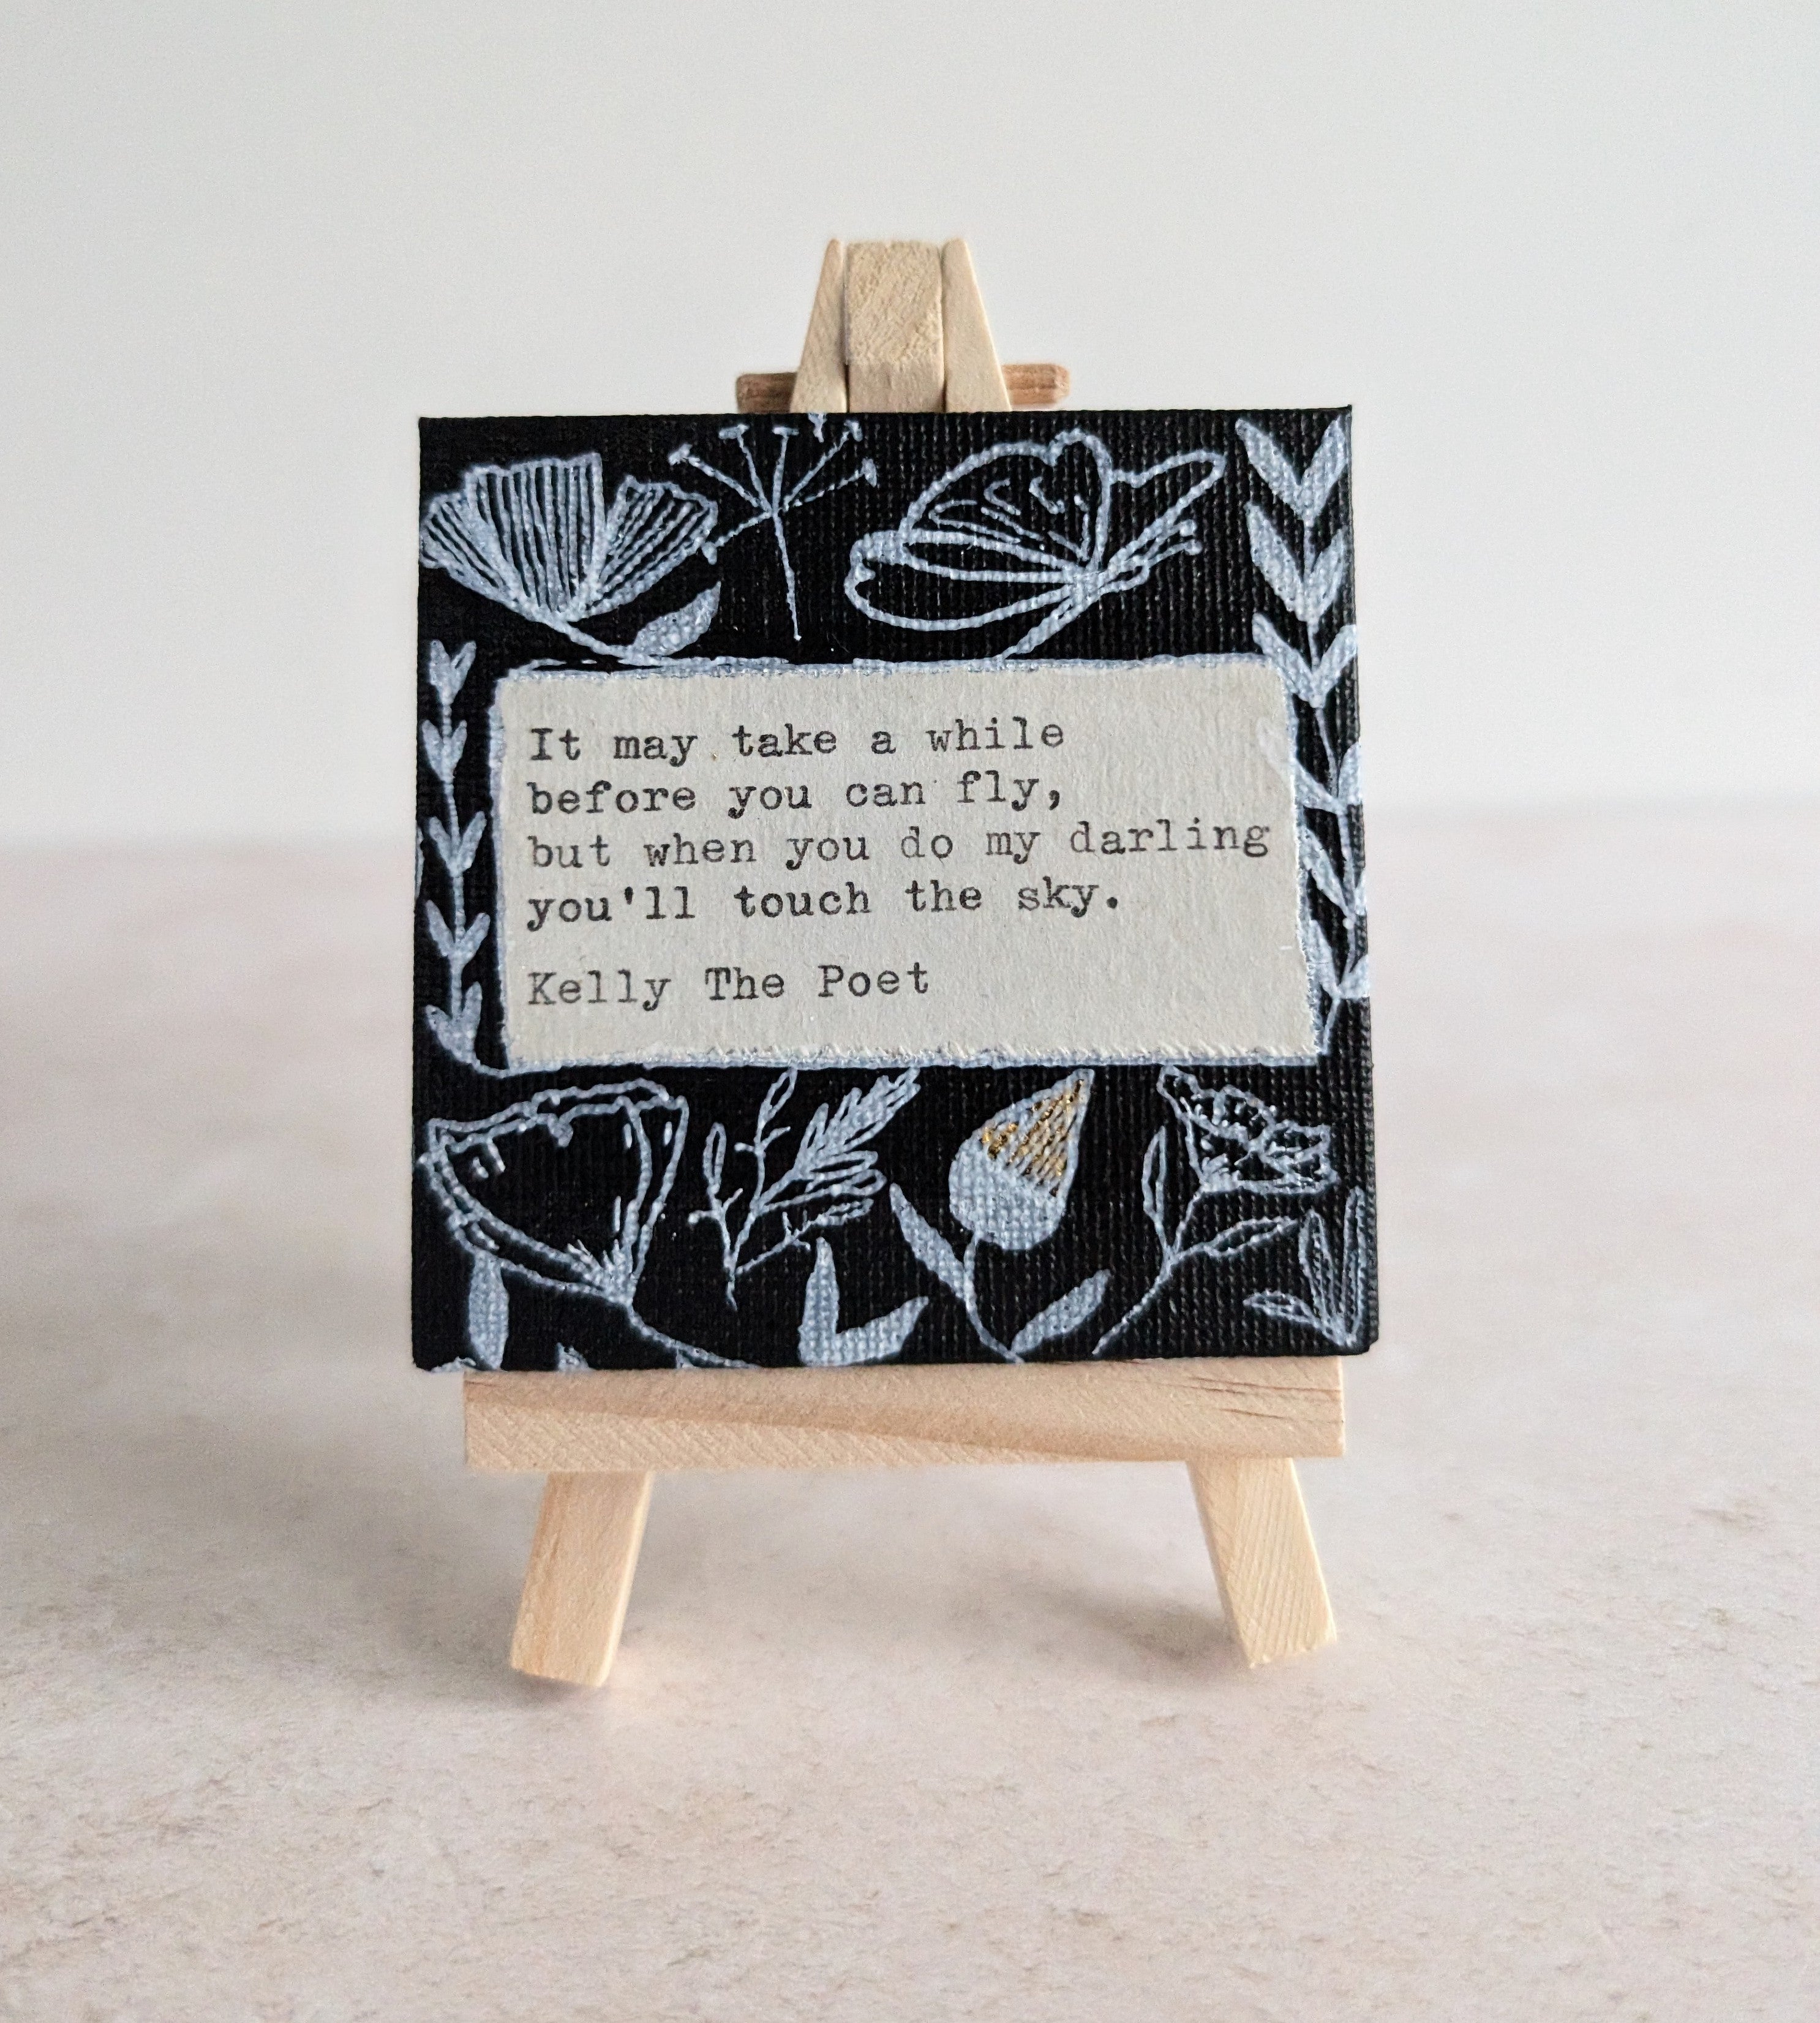 It may take a while
before you can fly,
but when you do my darling
you'll touch the sky.
Kelly The Poet